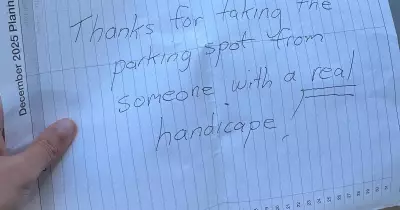 Thanks for taking the
parking spot from
someone with a real
handicape.
December 2025 Plann